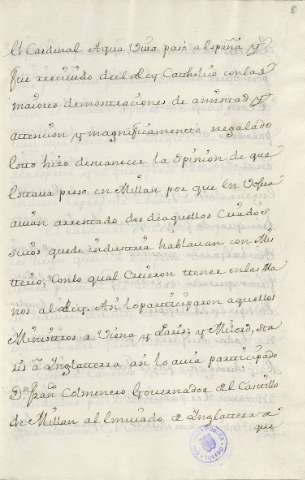 el Cardenal Aqua Viva pasó a España, y
fue recivido del Rey Catholico con las
maiores demostraciones de amistad, y
attencion, y magnificamente regalado
esto hizo desvanecer la opinion de que
estava preso en Millan por que en
avian arrestado dos de aquellos
que de industria hablavan con
con lo qual creieron tener en las Ma
nos al Rey. Asi lo participaron aquellos
Ministros a Viena y Paris, y
a Inglatterra asi lo avia participado
Dn. Fran Colmenero Governador del Castillo
de Millan al Embiado de Inglaterra a
que